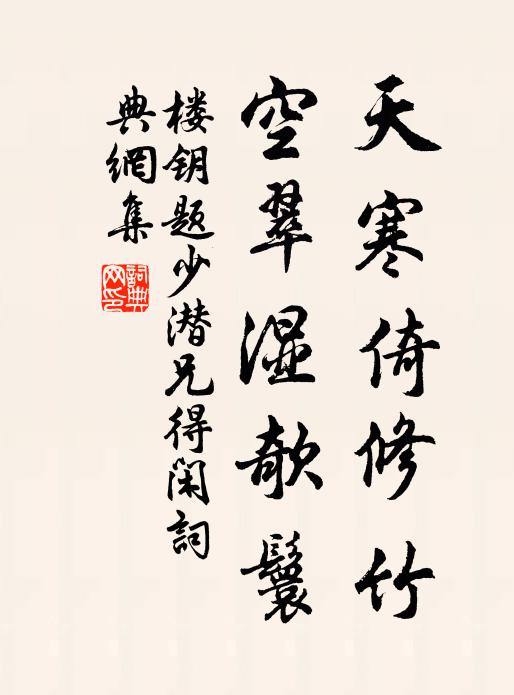 天寒倚修竹
空翠湿欹鬟
楼钥题少潜兄得闲詞
典網集
詞典网印